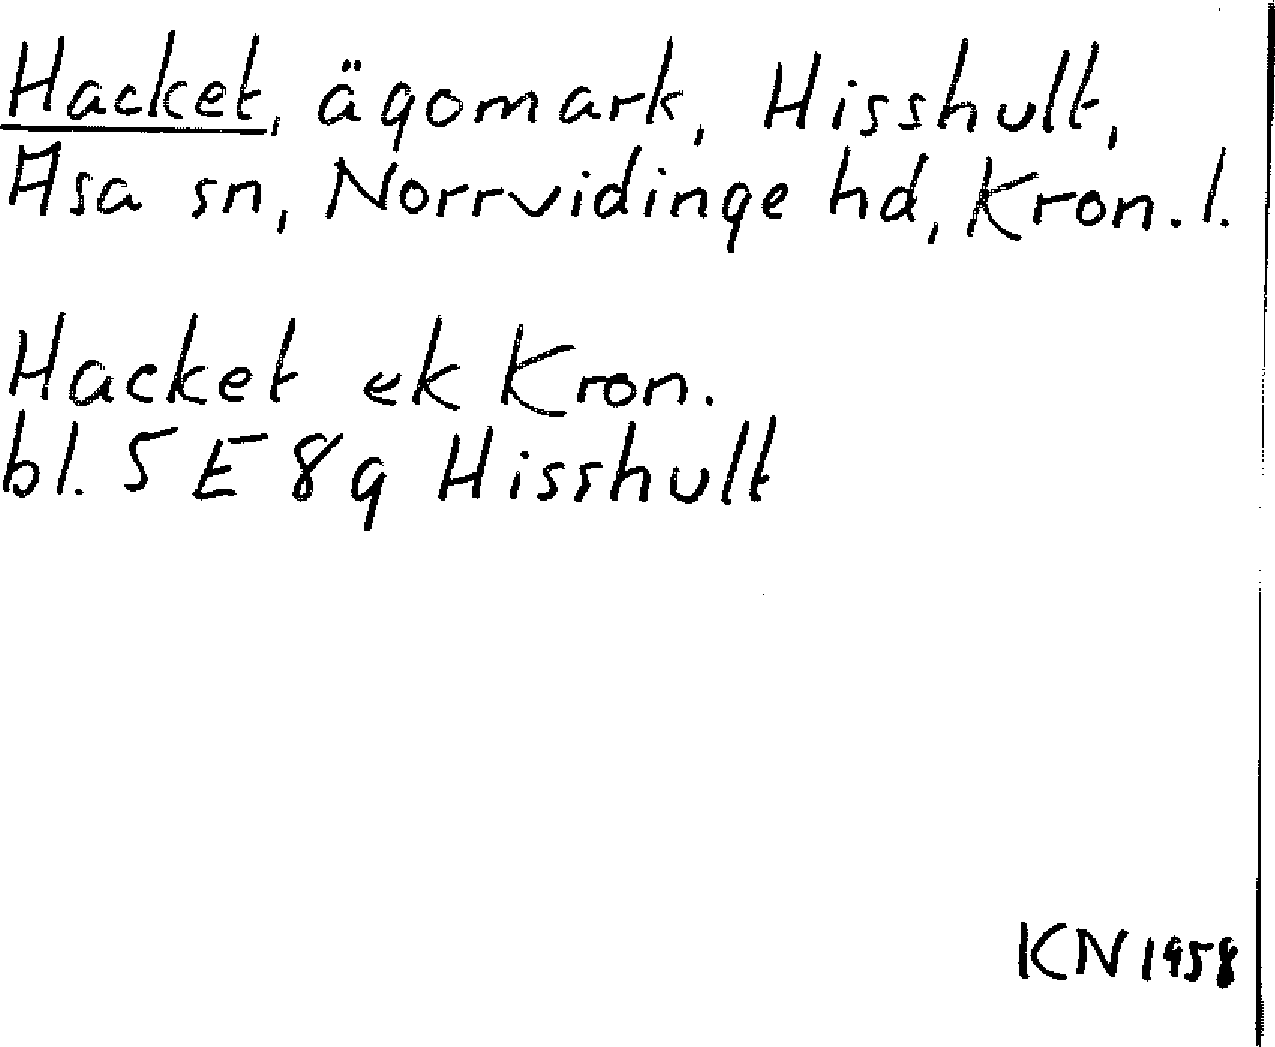 Hacket, ägomark, Hisshult,
Asa sn, Norrvidinge hd, Kron. l.
Hacket ek Kron.
bl. 5 E 8 g Hisshult
KN 1958